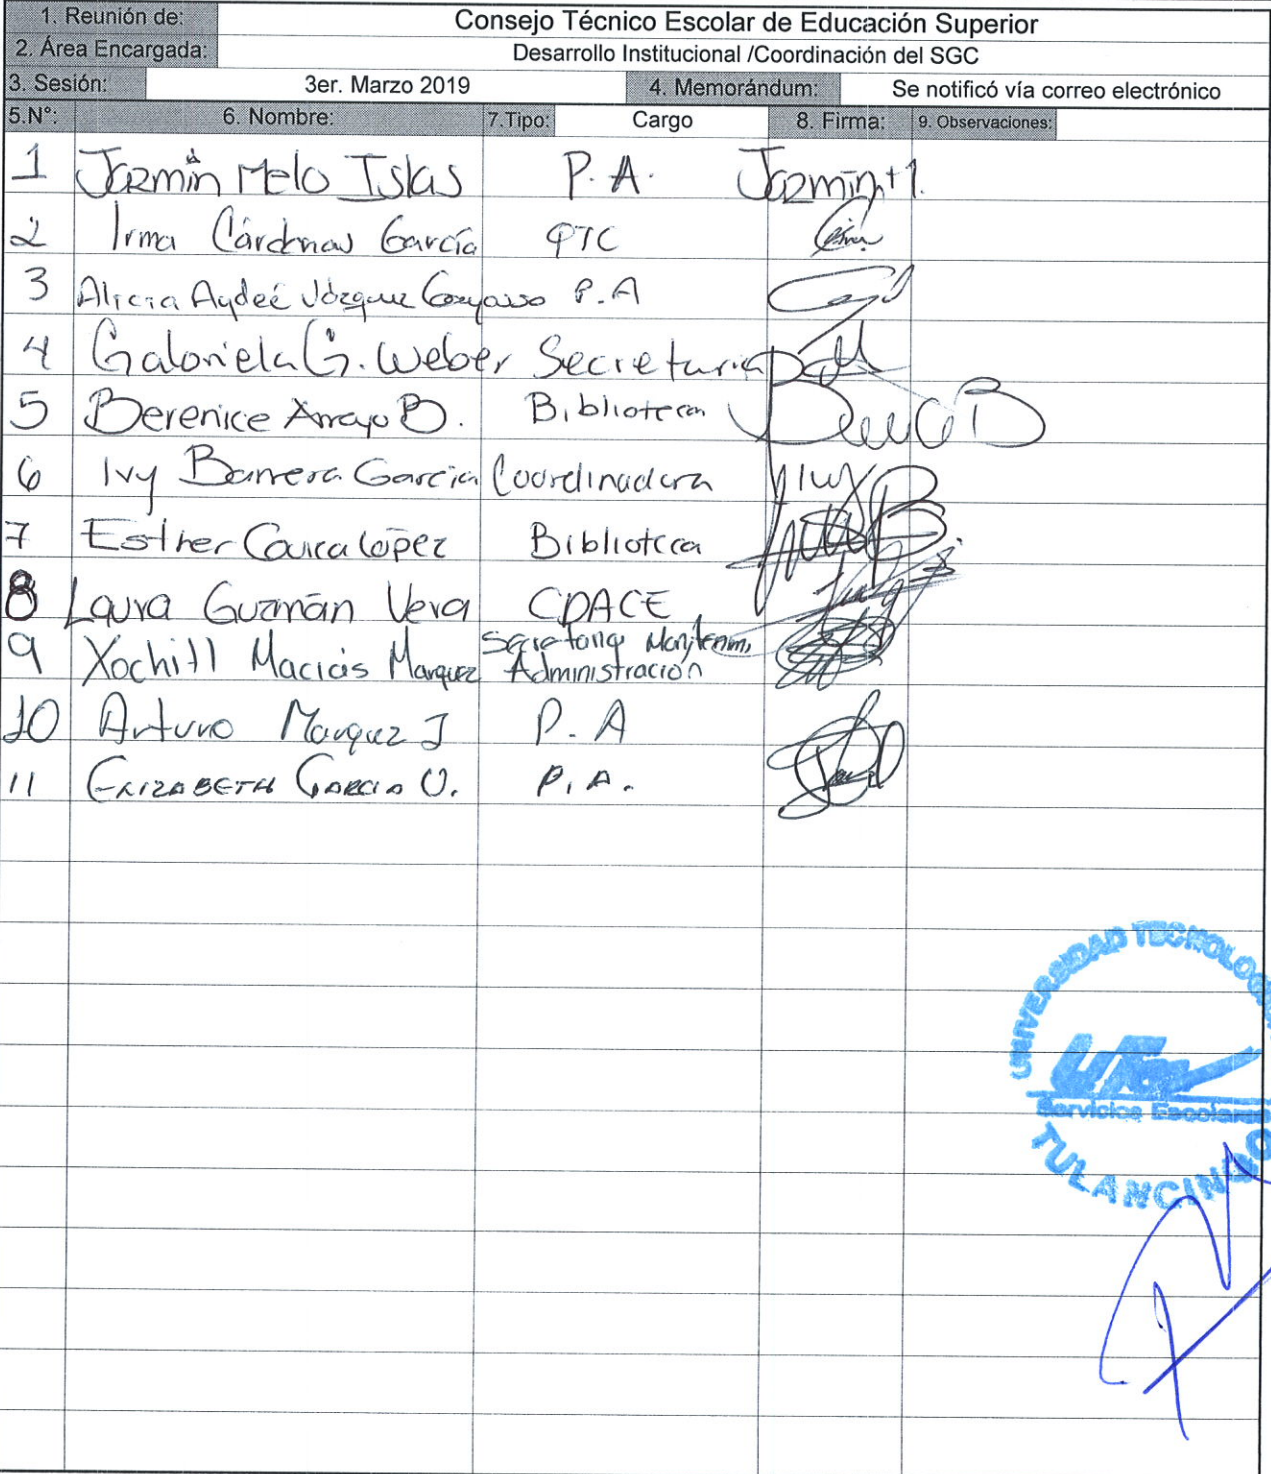 1. Reunión de: Consejo Técnico Escolar de Educación Superior
2. Área Encargada: Desarrollo Institucional /Coordinación del SGC
3. Sesión: 3er. Marzo 2019 4. Memorándum: Se notificó vía correo electrónico
5.N°: 6. Nombre: 7.Tipo: Cargo 8. Firma: 9. Observaciones:
1 Jazmín Melo Islas P. A. Jazmín
2 Irma Cárdenas García PTC
3 Alicia Aydeé Vázquez P. A
4 Gabriela G. Weber Secretaria
5 Berenice Arroyo B. Biblioteca
6 Ivy Barrera Garcia Coordinadora
7 Esther López Biblioteca
8 Laura Guzmán Vera CDACE
9 Xochitl Macias Marquez Secretaria Mantenim,
Administración
10 Arturo Marquez J P. A
11 Elizabeth Garcia O. P. A.
UNIVERSIDAD TECNOLOG
UTec
Servicios Escolares
TULANCINGO